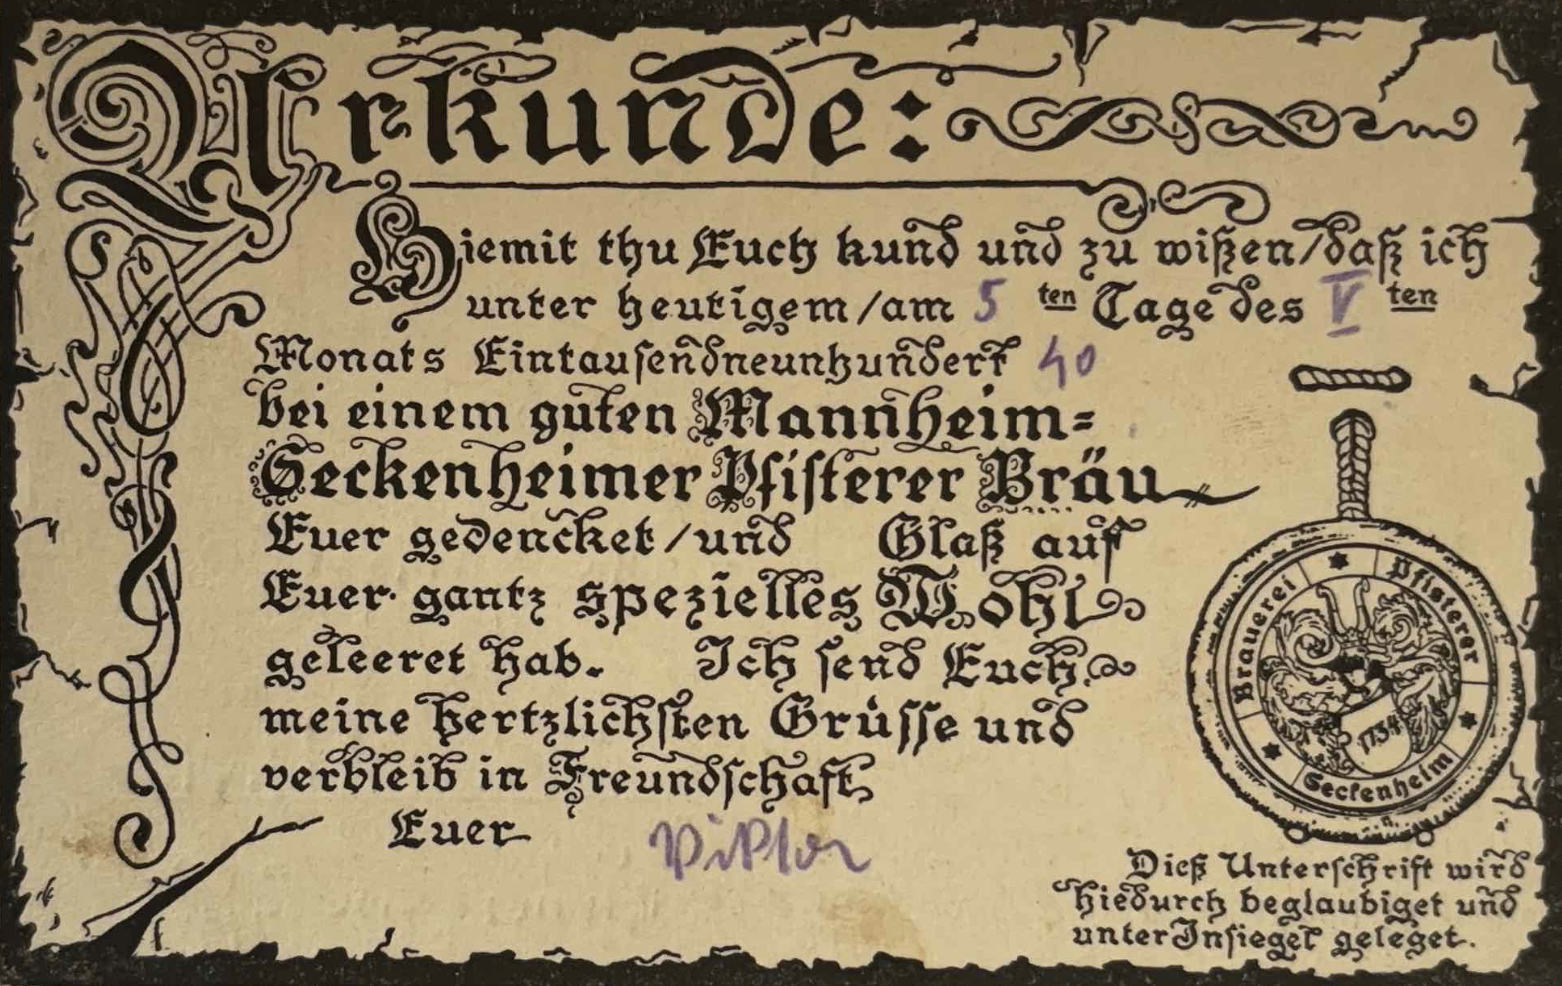 Urkunde:
Hiemit thu Euch kund und zu wißen/daß ich
unter heutigem/am 5 ten Tage des V ten
Monats Eintausendneunhundert 40
bei einem guten Mannheim=
Seckenheimer Pfisterer Bräu
Euer gedencket/und — Glaß auf
Euer gantz spezielles Wohl
geleeret hab. Ich send Euch
meine hertzlichsten Grüsse und
verbleib in Freundschaft
Euer Viktor
Brauerei Pfisterer
1734
Seckenheim
Dieß Unterschrift wird
hiedurch beglaubiget und
unter Insiegel geleget.